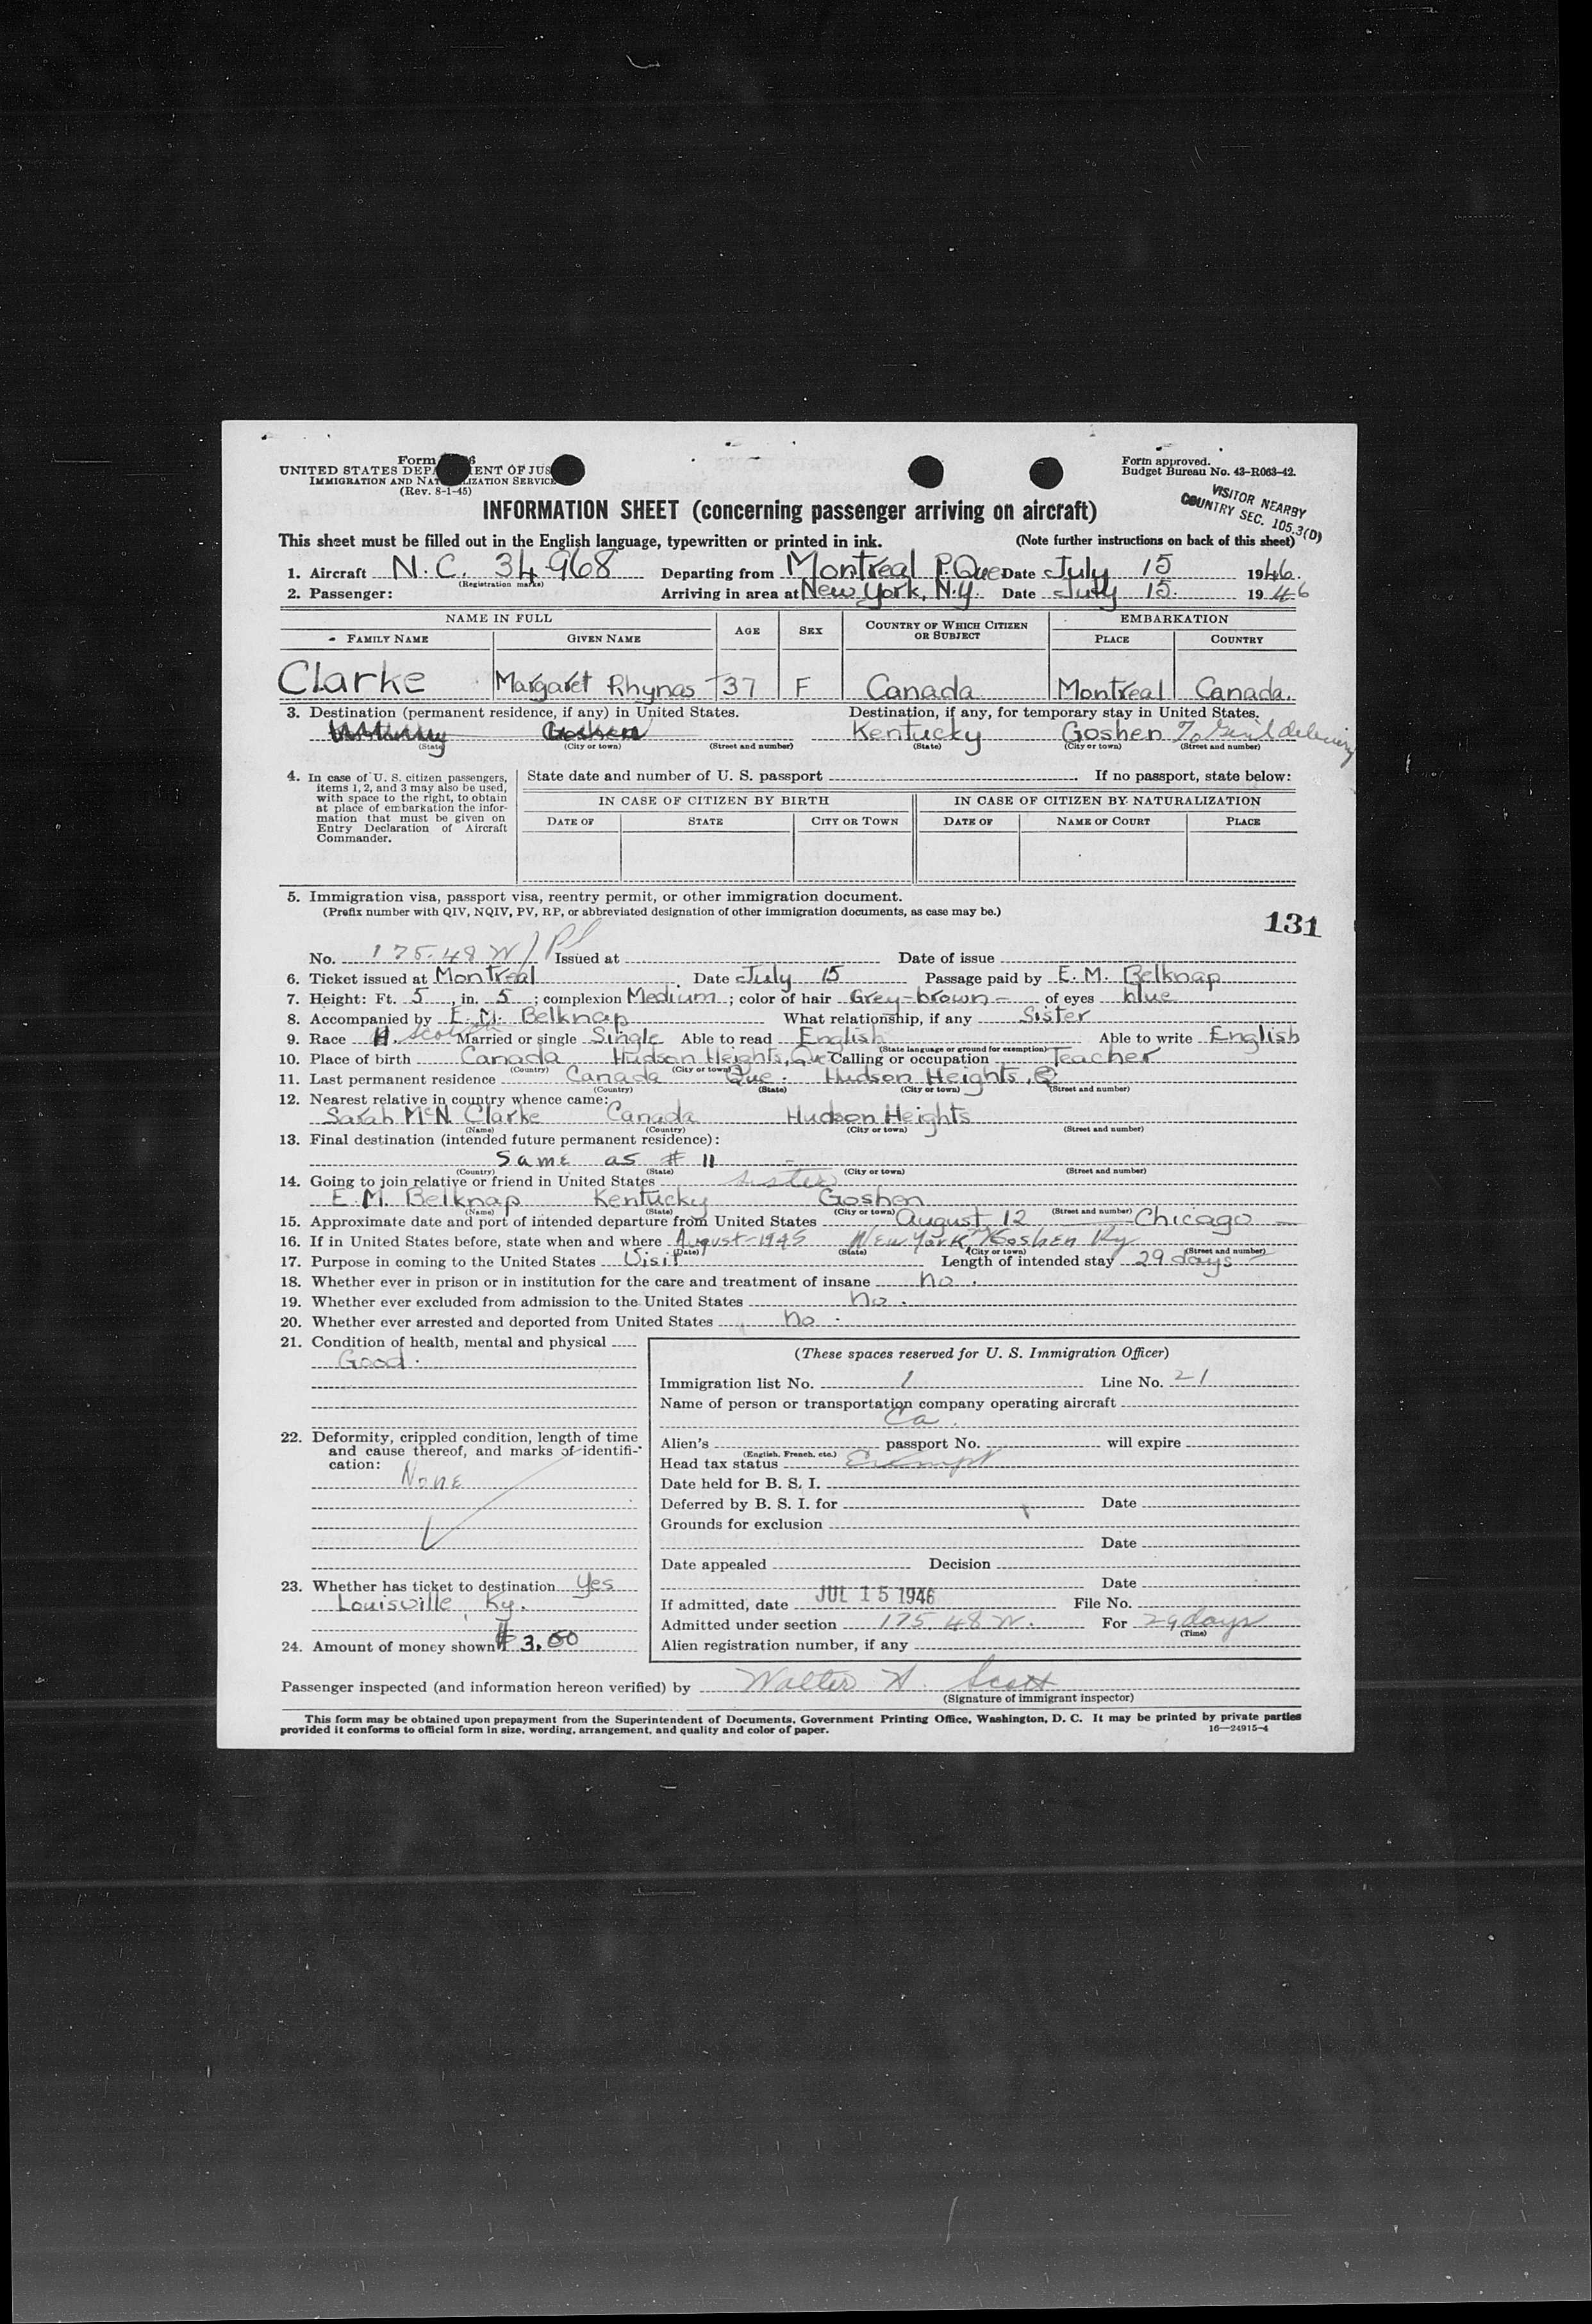 Form
UNITED STATES DEPA ENT OF JUS
IMMIGRATION AND NAT LIZATION SERVICE
(Rev. 8-1-45)
Form approved.
Budget Bureau No. 43-R063-42.
VISITOR NEARBY
COUNTRY SEC. 105.3(D)
INFORMATION SHEET (concerning passenger arriving on aircraft)
This sheet must be filled out in the English language, typewritten or printed in ink. (Note further instructions on back of this sheet)
1. Aircraft N.C. 34968 Departing from Montreal P.Que Date July 15 1946.
(Registration marks)
2. Passenger: Arriving in area at New York, N.Y. Date July 15. 1946
NAME IN FULL AGE SEX COUNTRY OF WHICH CITIZEN OR SUBJECT EMBARKATION
FAMILY NAME GIVEN NAME PLACE COUNTRY
Clarke Margaret Rhynas 37 F Canada Montreal Canada.
3. Destination (permanent residence, if any) in United States. Destination, if any, for temporary stay in United States.
Goshen Kentucky Goshen % Genl delivery
(State) (City or town) (Street and number) (State) (City or town) (Street and number)
4. In case of U. S. citizen passengers, items 1, 2, and 3 may also be used, with space to the right, to obtain at place of embarkation the information that must be given on Entry Declaration of Aircraft Commander.
State date and number of U. S. passport If no passport, state below:
IN CASE OF CITIZEN BY BIRTH IN CASE OF CITIZEN BY NATURALIZATION
DATE OF STATE CITY OR TOWN DATE OF NAME OF COURT PLACE
5. Immigration visa, passport visa, reentry permit, or other immigration document.
(Prefix number with QIV, NQIV, PV, RP, or abbreviated designation of other immigration documents, as case may be.)
131
No. 175.48 W / Pl Issued at Date of issue
6. Ticket issued at Montreal Date July 15 Passage paid by E.M. Belknap
7. Height: Ft. 5, in. 5; complexion Medium; color of hair Grey-brown- of eyes blue
8. Accompanied by E.M. Belknap What relationship, if any Sister
9. Race Scotch Married or single Single Able to read English Able to write English
(State language or ground for exemption)
10. Place of birth Canada Hudson Heights, Que Calling or occupation Teacher
(Country) (City or town)
11. Last permanent residence Canada Que. Hudson Heights, Q
(Country) (State) (City or town) (Street and number)
12. Nearest relative in country whence came:
Sarah McN. Clarke Canada Hudson Heights
(Name) (Country) (City or town) (Street and number)
13. Final destination (intended future permanent residence):
Same as # 11
(Country) (State) (City or town) (Street and number)
14. Going to join relative or friend in United States sister
E.M. Belknap Kentucky Goshen
(Name) (State) (City or town) (Street and number)
15. Approximate date and port of intended departure from United States August 12 Chicago
16. If in United States before, state when and where August-1945 New York Goshen Ky
(Date) (State) (City or town) (Street and number)
17. Purpose in coming to the United States Visit Length of intended stay 29 days
18. Whether ever in prison or in institution for the care and treatment of insane no.
19. Whether ever excluded from admission to the United States no.
20. Whether ever arrested and deported from United States no.
21. Condition of health, mental and physical
Good.
22. Deformity, crippled condition, length of time and cause thereof, and marks of identification:
None
23. Whether has ticket to destination yes
Louisville, Ky.
24. Amount of money shown $3.00
(These spaces reserved for U. S. Immigration Officer)
Immigration list No. 1 Line No. 21
Name of person or transportation company operating aircraft
Ca.
Alien's passport No. will expire
(English, French, etc.)
Head tax status Exempt
Date held for B. S. I.
Deferred by B. S. I. for Date
Grounds for exclusion
Date
Date appealed Decision
Date
If admitted, date JUL 15 1946 File No.
Admitted under section 175.48 W. For 29 days
(Time)
Alien registration number, if any
Passenger inspected (and information hereon verified) by Walter H. Scott
(Signature of immigrant inspector)
This form may be obtained upon prepayment from the Superintendent of Documents, Government Printing Office, Washington, D. C. It may be printed by private parties
provided it conforms to official form in size, wording, arrangement, and quality and color of paper. 16—24915-4